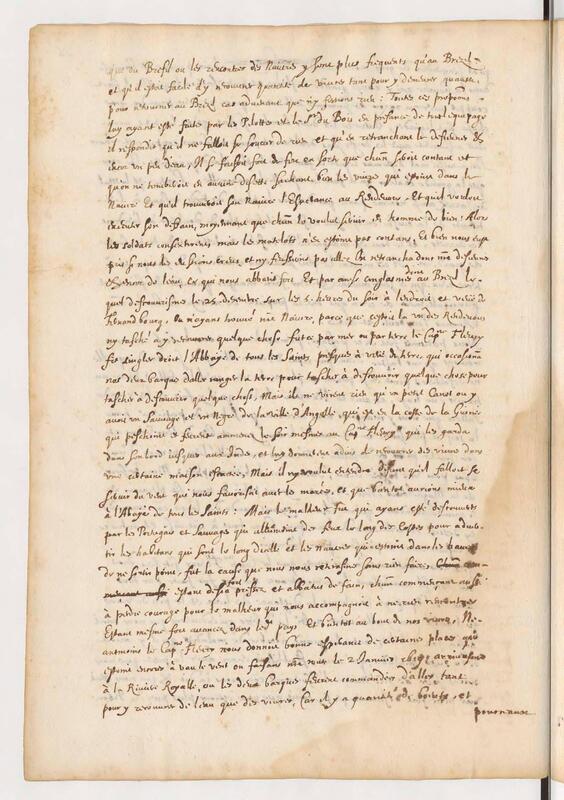 que du Bresil ou les rencontres des Navires y sont plus frequents qu'au Brezil
et qu'il estoit facile d'y recouvrer quantité de vivres tant pour y demeurer quant
pour retourner au Brezil cas advenant que n'y fissions rien : Toutes ces propositions
luy ayant esté faites par les Pilottes et le Sr. du Bois en presence de tout l'equipage
il respondit qu'il ne falloit se soucier de rien et qu'en retranchant le
un peu d'eau, Il se faisoit fort de faire en sorte que chacun seroit contant et
qu'on ne tomberoit en aucune disette sachant bien les vivres qui estoient dans le
Navire Et qu'il trouveroit son Navire l'Esperance au Rendevous, Et qu'il vouloit
executer son dessain, moyennant que chacun le voulut servir en homme de bien : Alors
les soldats consentirent mais les matelots n'en estoient pas contans, Et bien nous eust
pris si nous les eussions creus, et n'y fussions pas allez On retrancha dont nre
de l'eau, ce qui nous abbatit fort Et par ainsi cinglasmes droit au Brezil le-
quel descouvrismes le 25 decembre sur les 5 heures du soir à l'endroit et veue de
Fernandbourg, Ou n'ayans trouvé nre Navire, parce que c'estoit là un des Rendevous
ny tasché à y recouvrer quelque chose fut ce par mer ou par terre le Capne. Fleury
fit cingler droit à l'Abbaye de tous les Saints, presque à veue de terre, qui occasionna
nos deux barques d'aller ranger la terre pour tascher à descouvrir quelque chose pour
tascher à descouvrir quelque chose, Mais ils ne virent rien qu'un petit Canot ou y
avoit un Sauvage et un Negre de la ville d'Angolle, qui est en la coste de la Guinée
qui peschoient et furent ammenez le soir mesme au Capne. Fleury qui les garda
dans son bord jusques aux Indes, et luy donnerent advis de recouvrer des vivres dans
une certaine maison, Mais il n'y voulut entendre disant qu'il falloit se
servir du vent qui nous favorisoit avec les marées, et que bientot aurions mieux
à l'Abbaye de tous les Saints : Mais le malheur fut que ayans esté descouverts
par les Portugais et Sauvages qui allumoient des feux le long des Costes pour adver-
tir les habitans qui sont le long d'icelle et les Navires qui estoient dans les havres
de ne sortir point, fut la cause que nous nous retirasmes sans rien faire,
estans desja fort pressez et abbatus de faim, chacun commençant aussi
à perdre courage pour le malheur qui nous accompagnoit à ne rien rencontrer
Estant mesme fort avancez dans les pays Et bientot au bout de nos vivres, Ne-
antmoins le Capne. Fleury nous donnoit bonne esperance de certaines places qui
estoient encores à vau le vent ou faisans nre route le 2 Janvier arrivasmes
à la Riviere Royalle, ou les deux barques furent commandées d'aller tant
pour y recouvrer de l'eau que des vivres, Car il y a quantité de bestes, et